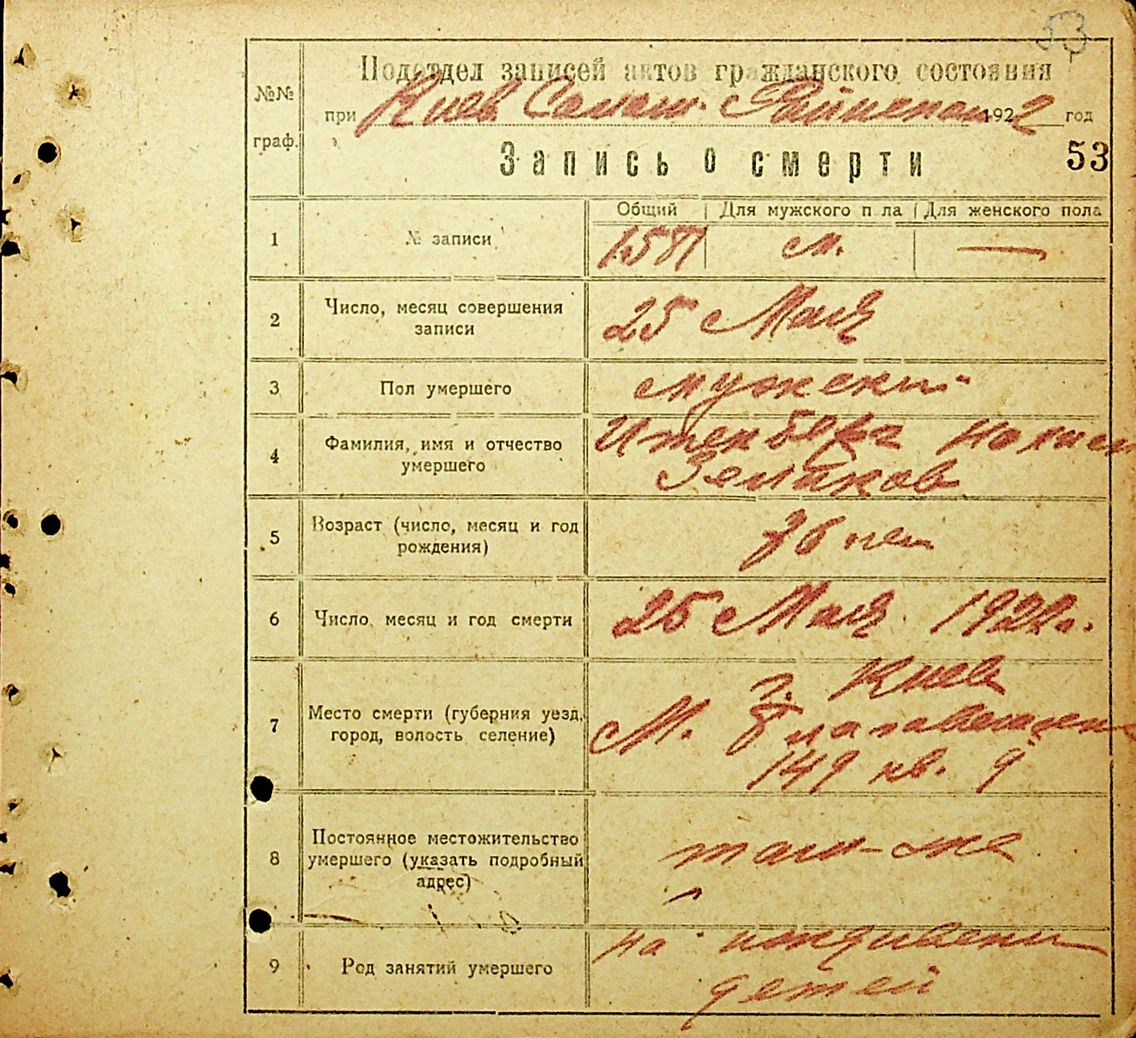 53
Подотдел записей актов гражданского состояния
№№ граф.
при Киев Солом. Райисполк 1922 год
Запись о смерти 53
Общий Для мужского пола Для женского пола
1 № записи 1581 м. —
2 Число, месяц совершения записи 25 Мая
3 Пол умершего мужской
4 Фамилия, имя и отчество умершего
5 Возраст (число, месяц и год рождения) 76 лет
6 Число, месяц и год смерти 25 Мая 1922 г.
7 Место смерти (губерния уезд, город, волость селение) г. Киев
М. Благовещенск
149 кв. 9
8 Постоянное местожительство умершего (указать подробный адрес) там-же
9 Род занятий умершего на иждивении
детей